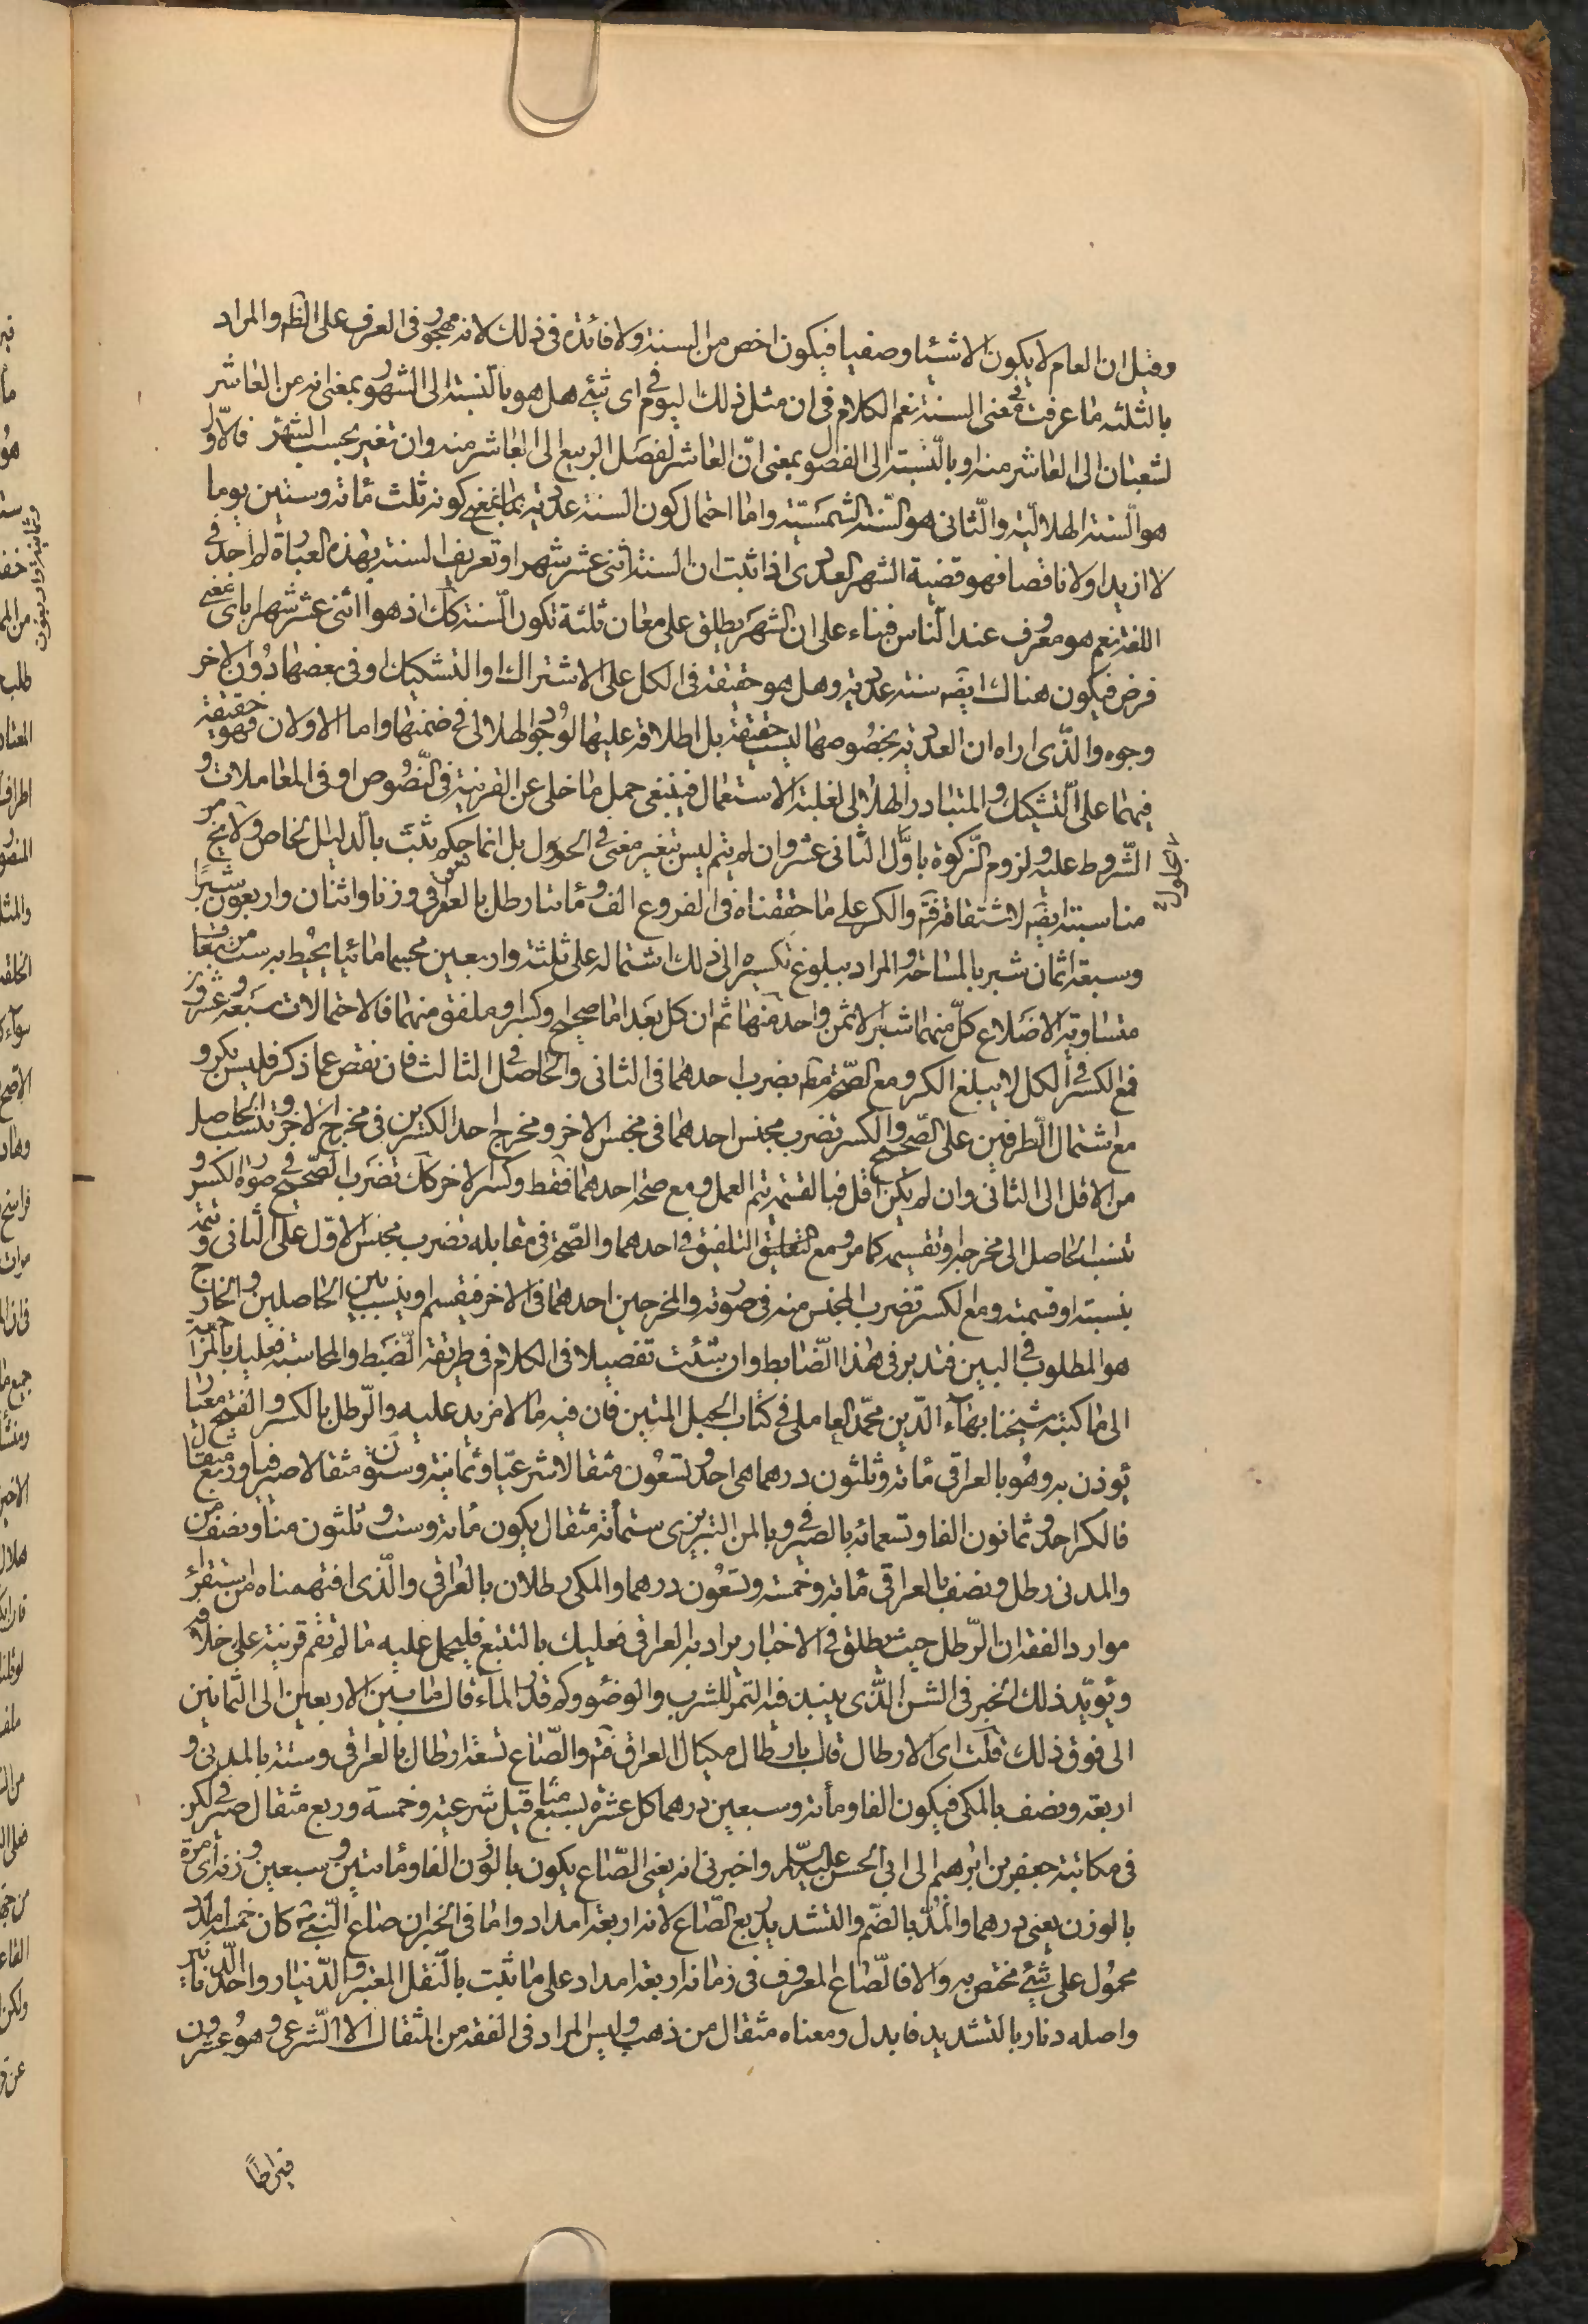 وقيل ان العام لا يكون الا شيئا وصفيا فيكون اخص من السنة ولا فائدة فى ذلك لانه مهجور فى العرف على الظ والمراد
بالثلثه ما عرفت فى معنى السنة نعم الكلام فى ان مثل ذلك اليوم فى اى شئ هل هو بالنسبة الى الشهور بمعنى انه من العاشر
لشعبان الى العاشر منه او بالنسبة الى الفصول بمعنى ان العاشر لفصل الربيع الى العاشر منه وان تغير بحسب الشهر فالاول
هو السنة الهلالية والثانى هو السنة الشمسية واما احتمال كون السنة عددية بمعنى كونه ثلث مائة وستين يوما
لا ازيد ولا ناقصا فهو قضية الشهر العددى اذا ثبت ان السنة اثنى عشر شهرا وتعريف السنة بهذه العبارة لم اجد فى
اللغة نعم هو معروف عند الناس فبناء على ان الشهر يطلق على معان ثلثة تكون السنة كك اذ هو اثنى عشر شهرا باى معنى
فرض فيكون هناك ايضه سنة عددية وهل هو حقيقة فى الكل على الاشتراك او التشكيك او فى بعضها دون الاخر
وجوه والذى اراه ان العددية بخصوصها ليست حقيقة بل اطلاقه عليها لوجود الهلالى فى ضمنها واما الاولان فهو حقيقة
فيهما على التشكيك والمتبادر الهلالى لغلبة الاستعمال فينبغى حمل ما خلى عن القرينة فى النصوص او فى المعاملات و
الشروط عليه ولزوم الزكوة باول الثانى عشر وان لم يتم ليس بتغير معنى فى الحول بل انما حكم ثبت بالدليل الخاص ولا يخ من
مناسبته ايضه لاشتقاقه فتم والكر على ما حققناه فى الفروع الف ومائتا رطل بالعراقى وزنا واثنان واربعون شبرا
وسبعة اثمان شبر بالمساحة والمراد ببلوغ تكسيره الى ذلك اشتماله على ثلثة واربعين مجسما مائيا يحيط به ست مربعات
متساوية الاضلاع كل منهما شبر الا ثمن واحد منها ثم ان كل بعد اما صحاح او كسر او ملفق منهما فالاحتمالات سبعة وعشرون
فمع الكسر فى الكل لا يبلغ الكر ومع الصحة مطه يضرب احدهما فى الثانى والحاصل فى الثالث فان نقص عما ذكر فليس بكر و
مع اشتمال الطرفين على الصحيح والكسر تضرب مجنس احدهما فى مجنس الاخر ومخرج احد الكسرين فى مخرج الاخر وتنسب الحاصل
من الاقل الى الثانى وان لم يكن اقل فبالقسمة يتم العمل ومع صحة احدهما فقط وكسر الاخر كك تضرب الصحيح فى صورة الكسر و
تنسب الحاصل الى مخرجه او تقسيمه كما مر ومع التلفيق فى احدهما والصحة فى مقابله تضرب مجنس الاول على الثانى وتتمه
بنسبته او قسمته ومع الكسر تضرب المجنس منه فى صورته والمخرجين احدهما فى الاخر فيقسم او ينسب بين الحاصلين والخارج
هو المطلوب فى البين فتدبر فى هذا الضابط وان شئت تفصيلا فى الكلام فى طريقة الضبط والمحاسبة فعليك بالمراجعة
الى ما كتبه شيخنا بهاء الدين محمد العاملى فى كتاب الحبل المتين فان فيه ما لا مزيد عليه والرطل بالكسر والفتح معيار
يوزن به وهو بالعراقى مائة وثلثون درهما هى احد وتسعون مثقالا شرعيا وثمانية وستون مثقالا صيرفيا وربع مثقال
فالكر احد وثمانون الفا وتسعمائة بالصيرفى وبالمن التبريزى ستمأئة مثقال يكون مائة وست وثلثون منا ونصف من
والمدنى رطل ونصف بالعراقى مائة وخمسة وتسعون درهما والمكى رطلان بالعراقى والذى افتهمناه من استقراء
موارد الفقه ان الرطل حيث يطلق فى الاخبار يراد به العراقى فعليك بالتتبع فليحمل عليه ما لم تقم قرينة على خلافه
ويؤيد ذلك الخبر فى الشن الذى ينبذ فيه التمر للشرب والوضوء وكم قدر الماء قال ما بين الاربعين الى الثمانين
الى فوق ذلك قلت اى الارطال قال بارطال مكيال العراق فتم والصاع تسعة ارطال بالعراقى وستة بالمدنى و
اربعة ونصف بالمكى فيكون الفا ومأئة وسبعين درهما كل عشرة بسبع مثاقيل شرعية وخمسة وربع مثقال صيرفى لكن
فى مكاتبة جعفر بن ابرهيم الى ابى الحسن عليه السلم واخبرنى انه يعنى الصاع يكون بالوزن الفا ومائتين وسبعين وزنة اى مرة
بالوزن يعنى درهما والمد بالضم والتشديد ربع الصاع لانه اربعة امداد واما فى الخبر ان صاع النبى كان خمسة امداد
محمول على شئ مختص به والا فالصاع المعروف فى زمانه اربعة امداد على ما ثبت بالنقل المعتبر والدينار واحد الدنانير
واصله دنار بالتشديد فابدل ومعناه مثقال من ذهب وليس المراد فى الفقه من المثقال الا الشرعى وهو عشرون
قيراطا